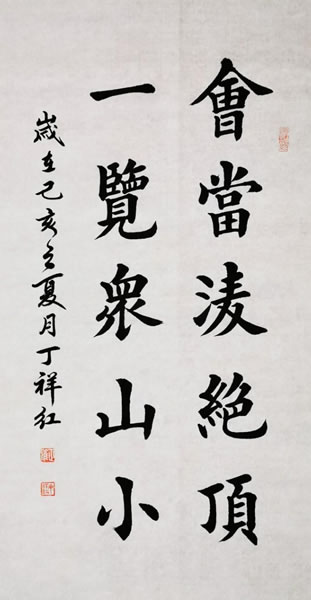 會當淩絕頂
一覽衆山小
歲在己亥之夏月丁祥红